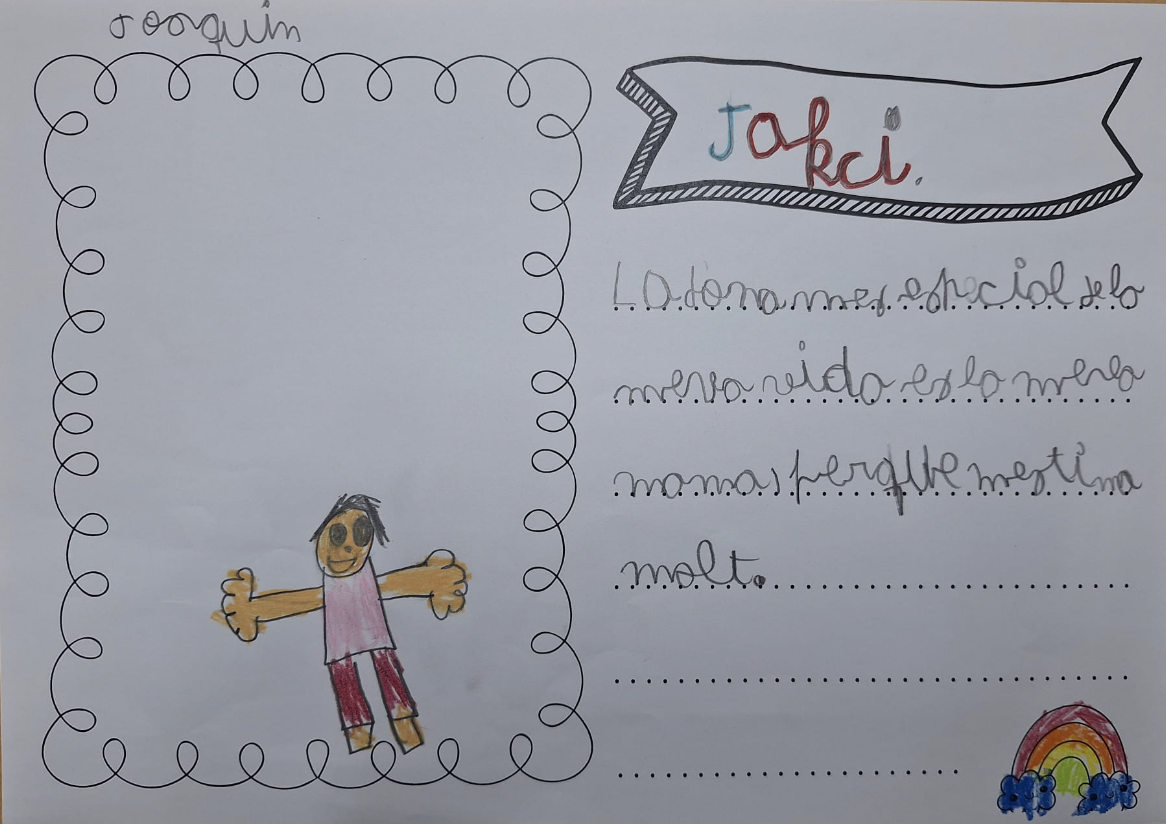 Joaquin
Jakci.
La dona mes especial de la
meva vida es la meva
mama, perque mestima
molt.